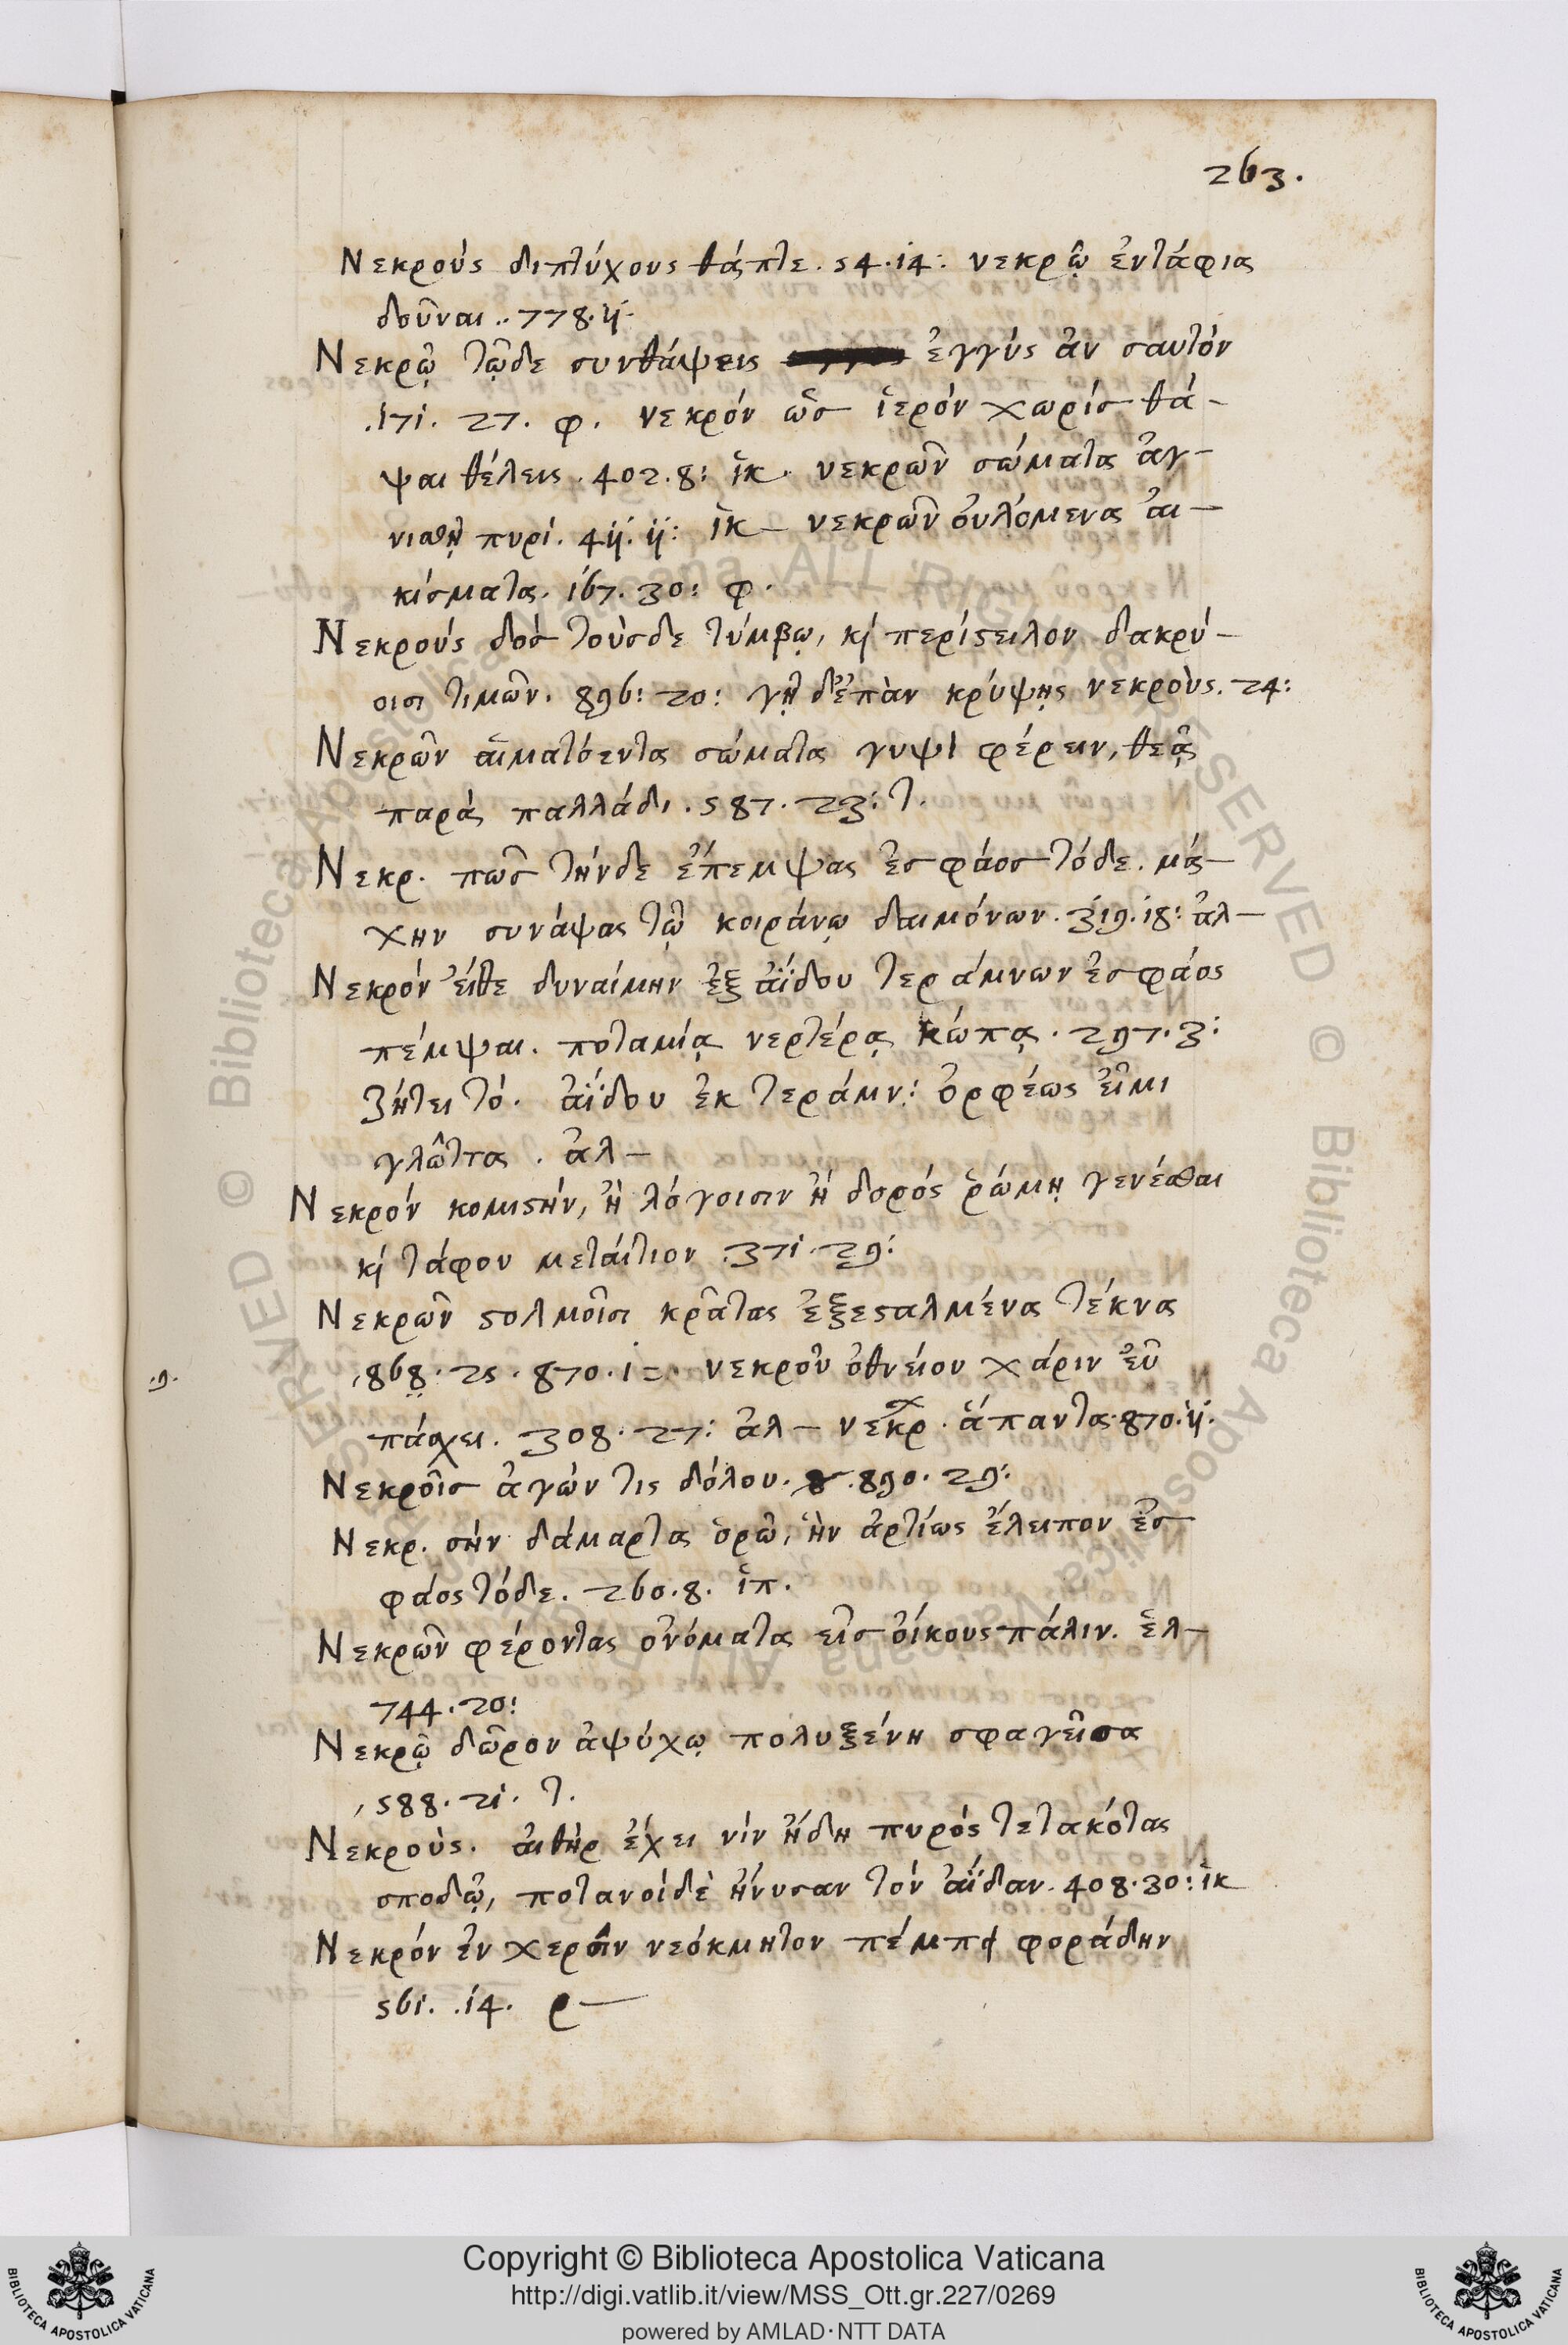 263.
Νεκρούς διπτύχους θάπτε. 54. 14: νεκρῷ ἐντάφια
δοῦναι.. 778. 11.
Νεκρῷ τῷδε συνθάψεις ἐγγύς ἂν σαυτόν
.171. 27. φ. νεκρόν ὡς ἱερόν χωρίς θά-
ψαι θέλεις. 402. 8: ἱκ. νεκρῶν σώματα ἁγ-
νισθῇ πυρί. 411. 11: ἱκ- νεκρῶν οὐλόμενα αἰ-
κίσματα. 167. 30: φ.
Νεκρούς δός τούσδε τύμβῳ, κỳ περίστειλον δακρύ-
οισι τιμῶν. 896: 20: γῇ δ' ἐπὰν κρύψῃς νεκροὺς. 24:
Νεκρῶν αἱματόεντα σώματα γυψὶ φέρειν, θεᾷ
παρά παλλάδι. 587. 23: τ.
Νεκρ. πῶς τήνδε ἔπεμψας ἐς φάος τόδε. μά-
χην συνάψας τῷ κοιράνῳ δαιμόνων. 319. 18: ἀλ-
Νεκρόν εἴθε δυναίμην ἐξ ἀΐδου τεράμνων ἐς φάος
πέμψαι. ποταμίᾳ νερτέρᾳ κώπᾳ. 297. 3:
Ζήτει τό. ἀΐδου ἐκ τεράμν: ὀρφέως εἶμι
γλῶττα. ἀλ-
Νεκρόν κομιστήν, ἢ λόγοισιν ἢ δορός ῥώμῃ γενέσθαι
κỳ τάφου μεταίτιον .371. 29:
Νεκρῶν στολμοῖσι κρᾶτας ἐξεσταλμένα τέκνα
,868. 25. 870. 1=. νεκροῦ ὀθνείου χάριν εὖ
.9.
πάσχει. 308. 27: ἀλ- νεκρ. ἅπαντα. 870. 11.
Νεκροῖς ἀγών τις δόλου. .890. 29:
Νεκρ. σήν δάμαρτα ὁρῶ, ἣν ἀρτίως ἔλειπον ἐς
φάος τόδε. 260. 8. ἱπ.
Νεκρῶν φέροντας ὀνόματα εἰς οἴκους πάλιν. ἑλ-
744. 20:
Νεκρῷ δῶρον ἀψύχῳ πολυξένη σφαγεῖσα
,588. 21. τ.
Νεκρούς. αἰθήρ ἔχει νίν ἤδη πυρός τετακότας
σποδῷ, ποτανοί δὲ ἤνυσαν τόν ἀΐδαν. 408. 30: ἱκ
Νεκρόν ἐν χεροῖν νεόκμητον πέμπει φοράδην
561. .14. ρ-
Copyright © Biblioteca Apostolica Vaticana
http://digi.vatlib.it/view/MSS_Ott.gr.227/0269
powered by AMLAD·NTT DATA